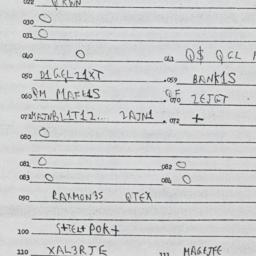 030 O
031 O
040 O 041 Q$ QGL
050 D1GGL21XT .059 BANK1S
060 PM MAFE1S QF 070 2EJGT
071 2AJN1 . 072 +
080 O
081 O 082 O
083 O 084 O
090 RAXMON3S QTEX
100 S+TEL+ POK+
110 XAL3RJE 111 MAGEJFE